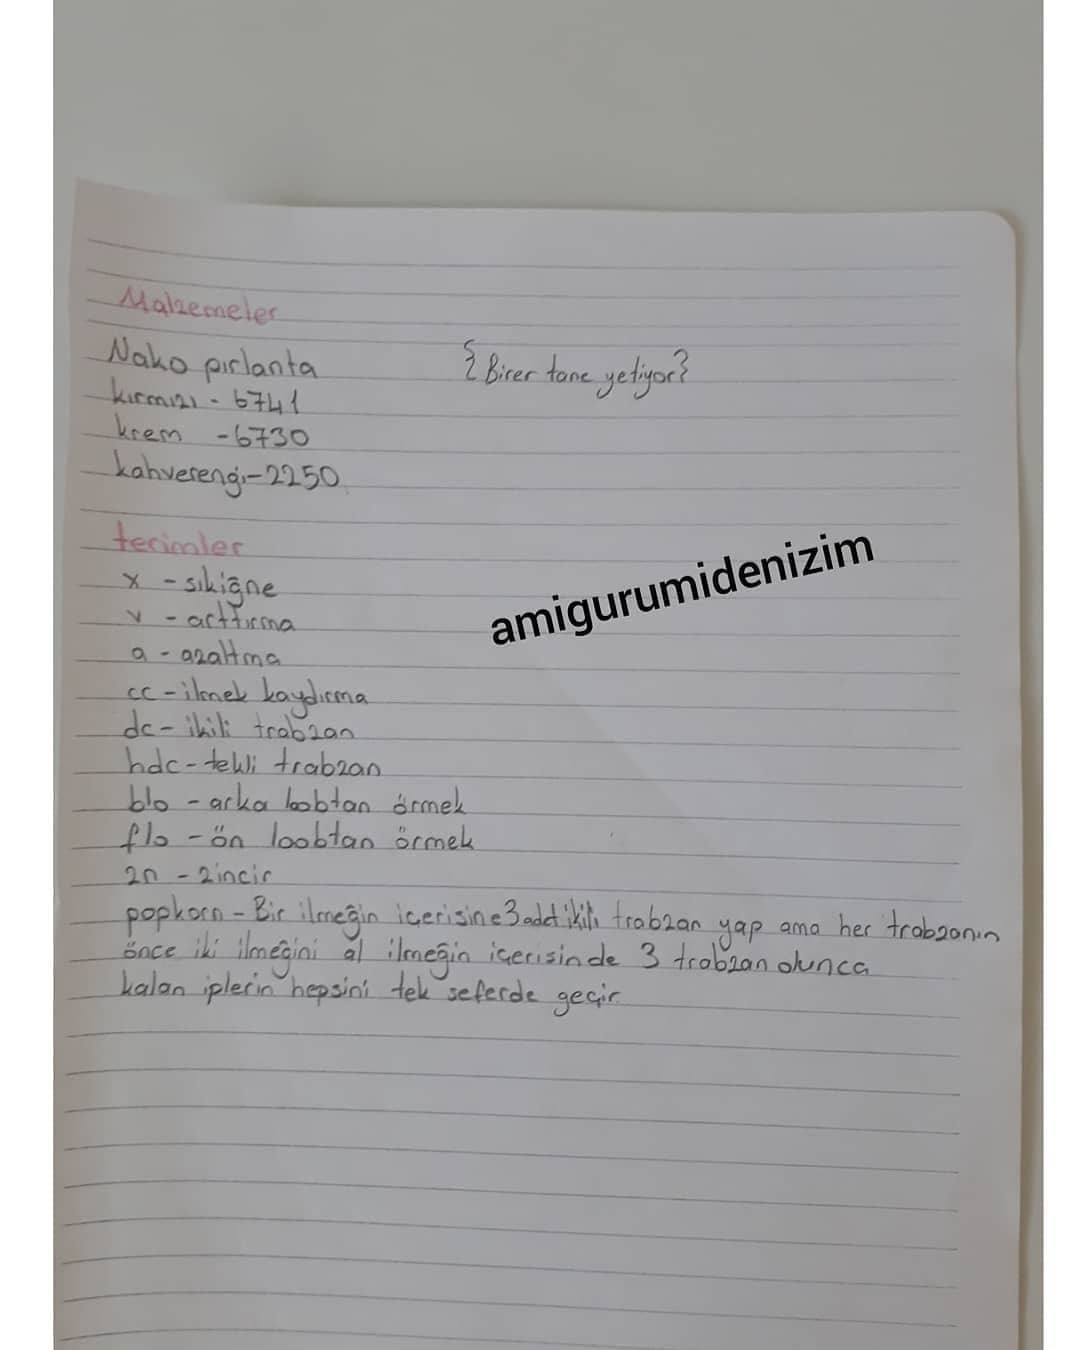 Malzemeler
Nako pırlanta {Birer tane yetiyor}
kırmızı - 6741
krem - 6730
kahverengi - 2250
terimler
x - sıkiğne
v - arttırma
a - azaltma
cc - ilmek kaydırma
dc - ikili trabzan
hdc - tekli trabzan
blo - arka loobtan örmek
flo - ön loobtan örmek
zn - zincir
popkorn - Bir ilmeğin içerisine 3 adet ikili trabzan yap ama her trabzanın
önce iki ilmeğini al ilmeğin içerisinde 3 trabzan olunca
kalan iplerin hepsini tek seferde geçir
amigurumidenizim